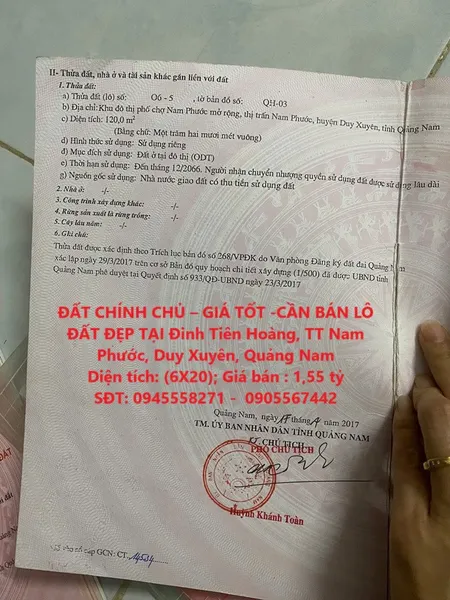 II- Thửa đất, nhà ở và tài sản khác gắn liền với đất
1. Thửa đất:
a) Thửa đất (lô) số: O6 - 5 , tờ bản đồ số: QH-03
b) Địa chỉ: Khu đô thị phố chợ Nam Phước mở rộng, thị trấn Nam Phước, huyện Duy Xuyên, tỉnh Quảng Nam
c) Diện tích: 120,0 m²
(Bằng chữ: Một trăm hai mươi mét vuông)
d) Hình thức sử dụng: Sử dụng riêng
đ) Mục đích sử dụng: Đất ở tại đô thị (ODT)
e) Thời hạn sử dụng: Đến tháng 12/2066. Người nhận chuyển nhượng quyền sử dụng đất được sử dụng lâu dài
g) Nguồn gốc sử dụng: Nhà nước giao đất có thu tiền sử dụng đất
2. Nhà ở: -/-
3. Công trình xây dựng khác: -/-
4. Rừng sản xuất là rừng trồng: -/-
5. Cây lâu năm: -/-
6. Ghi chú:
Thửa đất được xác định theo Trích lục bản đồ số 268/VPĐK do Văn phòng Đăng ký đất đai Quảng Nam
xác lập ngày 29/3/2017 trên cơ sở Bản đồ quy hoạch chi tiết xây dựng (1/500) đã được UBND tỉnh
Quảng Nam phê duyệt tại Quyết định số 933/QĐ-UBND ngày 23/3/2017
ĐẤT CHÍNH CHỦ – GIÁ TỐT -CẦN BÁN LÔ
ĐẤT ĐẸP TẠI Đinh Tiên Hoàng, TT Nam
Phước, Duy Xuyên, Quảng Nam
Diện tích: (6X20); Giá bán : 1,55 tỷ
SĐT: 0945558271 - 0905567442
Quảng Nam, ngày tháng năm 2017
TM. ỦY BAN NHÂN DÂN TỈNH QUẢNG NAM
CHỦ TỊCH
PHÓ CHỦ TỊCH
Huỳnh Khánh Toàn
cấp GCN: CT.